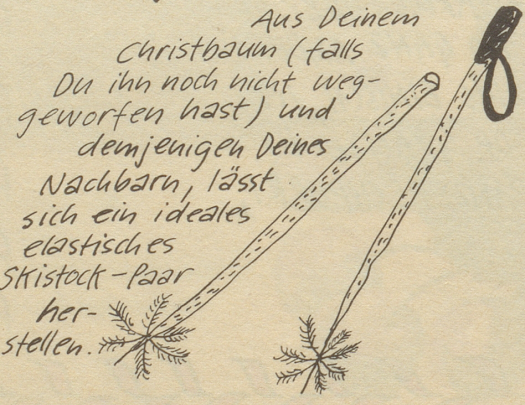 Aus Deinem
Christbaum (falls
Du ihn noch nicht weg-
geworfen hast) und
demjenigen Deines
Nachbarn, lässt
sich ein ideales
elastisches
Skistock-Paar
her-
stellen.